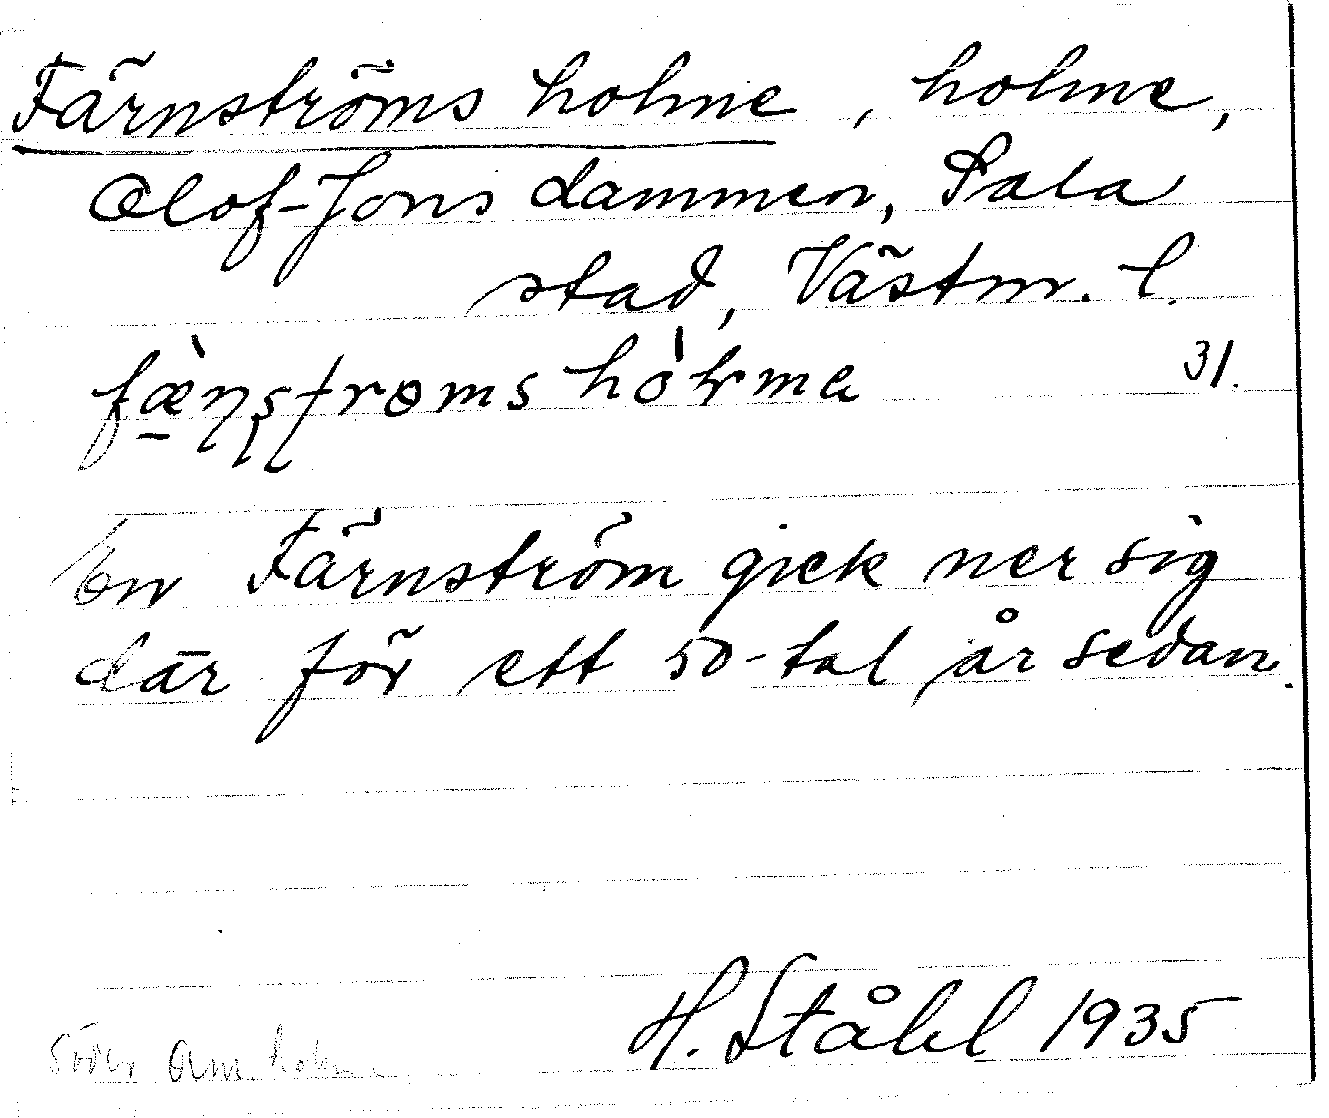 Färnströms holme, holme,
Olof-Jons dammen, Sala
stad, Västm. l.
fæ̀ṇṣṭrøms hòɫma 31.
En Färnström gick ner sig
där för ett 50-tal år sedan.
H. Ståhl 1935
Söder om